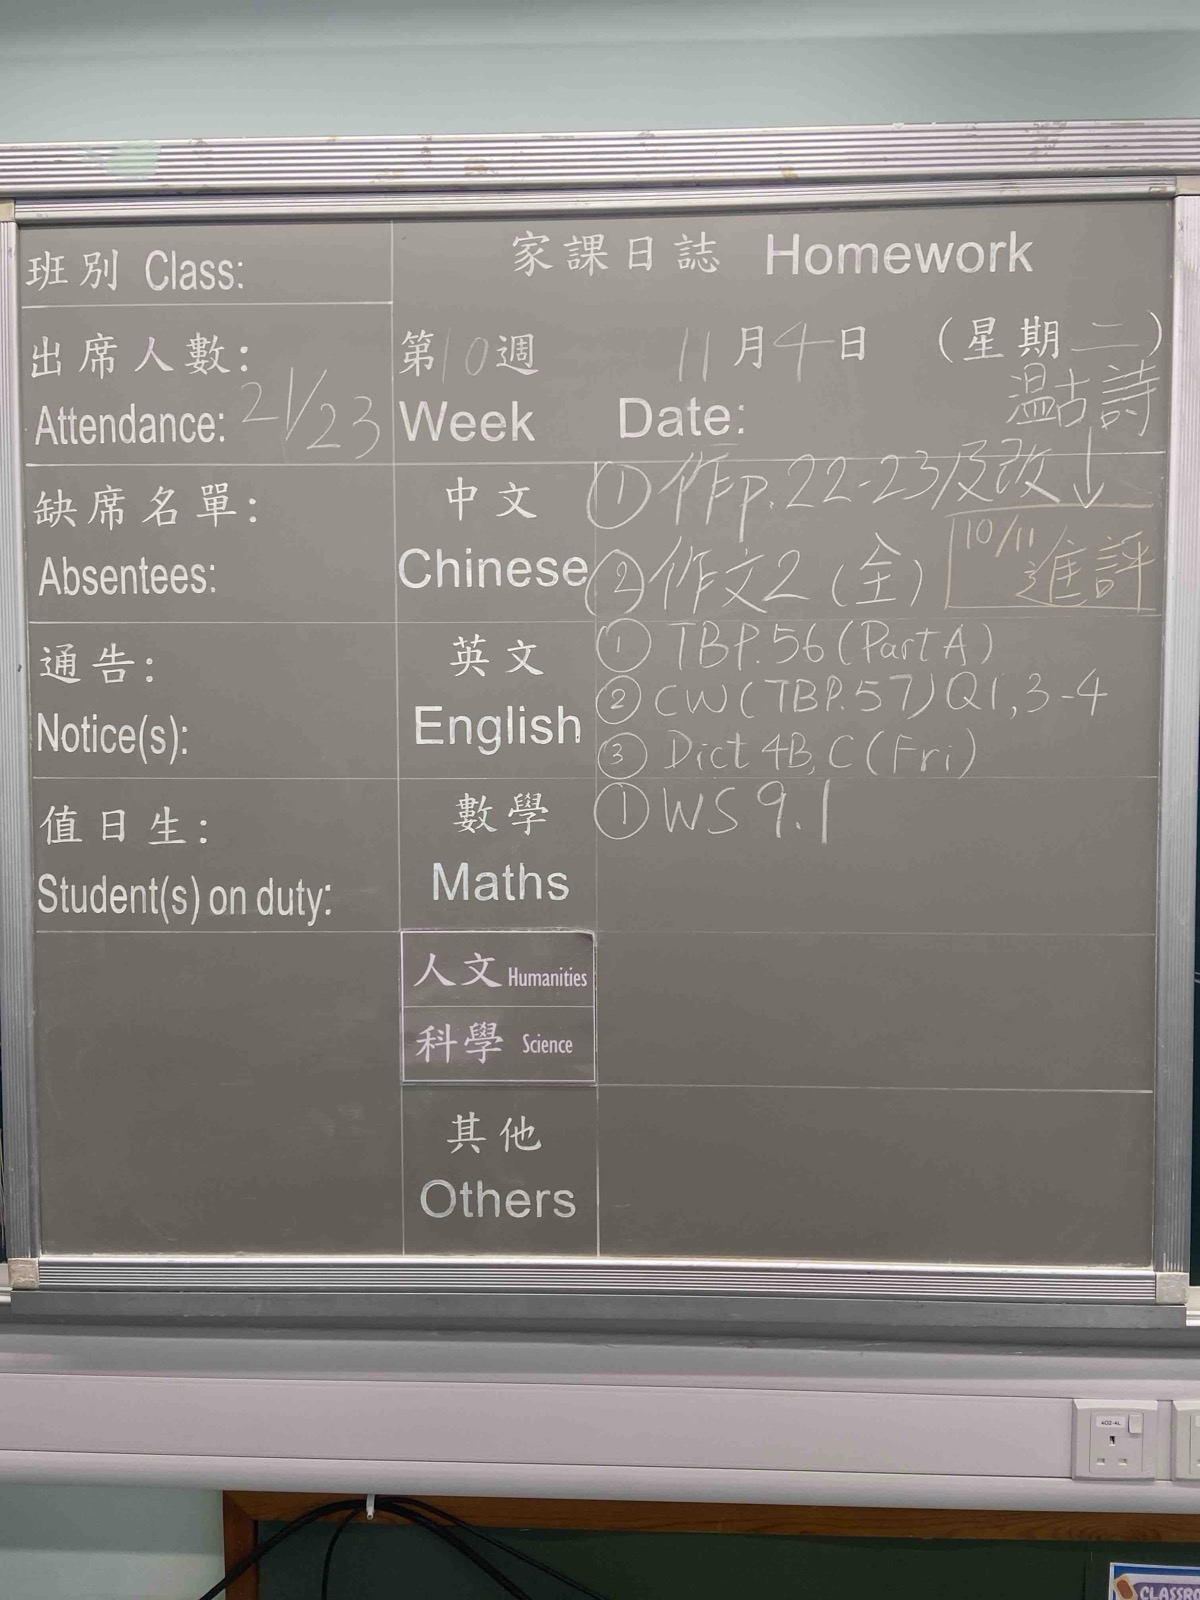 班別 Class:
家課日誌 Homework
出席人數:
Attendance: 21/23
第10週 11月4日 (星期二)
Week Date:
溫古詩
缺席名單:
Absentees:
中文
Chinese
① 作p.22-23及改
② 作文2 (全)
10/11
進評
通告:
Notice(s):
英文
English
① TBP.56 (Part A)
② CW (TBP.57) Q1, 3-4
③ Dict 4B, C (Fri)
值日生:
Student(s) on duty:
數學
Maths
① WS 9.1
人文 Humanities
科學 Science
其他
Others
402-4L
CLASSRO